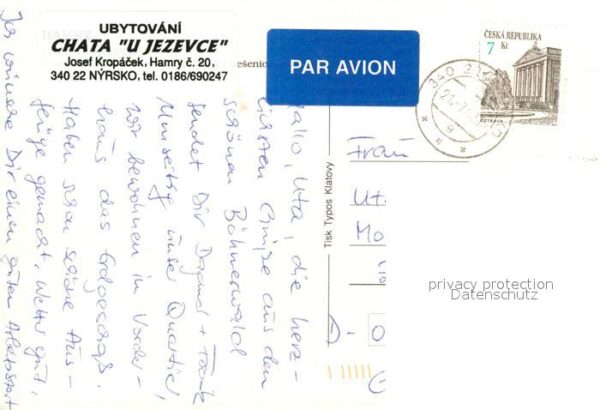 UBYTOVÁNÍ
CHATA "U JEZEVCE"
Josef Kropáček, Hamry č. 20,
340 22 NÝRSKO, tel. 0186/690247
PAR AVION
ČESKÁ REPUBLIKA
7
Kč
OSTRAVA
340 22
Hallo, Uta, die herz-
lichsten Grüße aus den
schönen Böhmerwald
sendet Dir Dagmar + Frank
Umseitig unser Quartier,
wir bewohnen in Vorder-
haus das Erdgeschoß.
Haben schon schöne Aus-
flüge gemacht. Wetter gut.
Ich wünsche Dir einen guten Arbeitsstart
Tisk Typos Klatovy
Frau
Ut
Mo
D-
privacy protection
Datenschutz